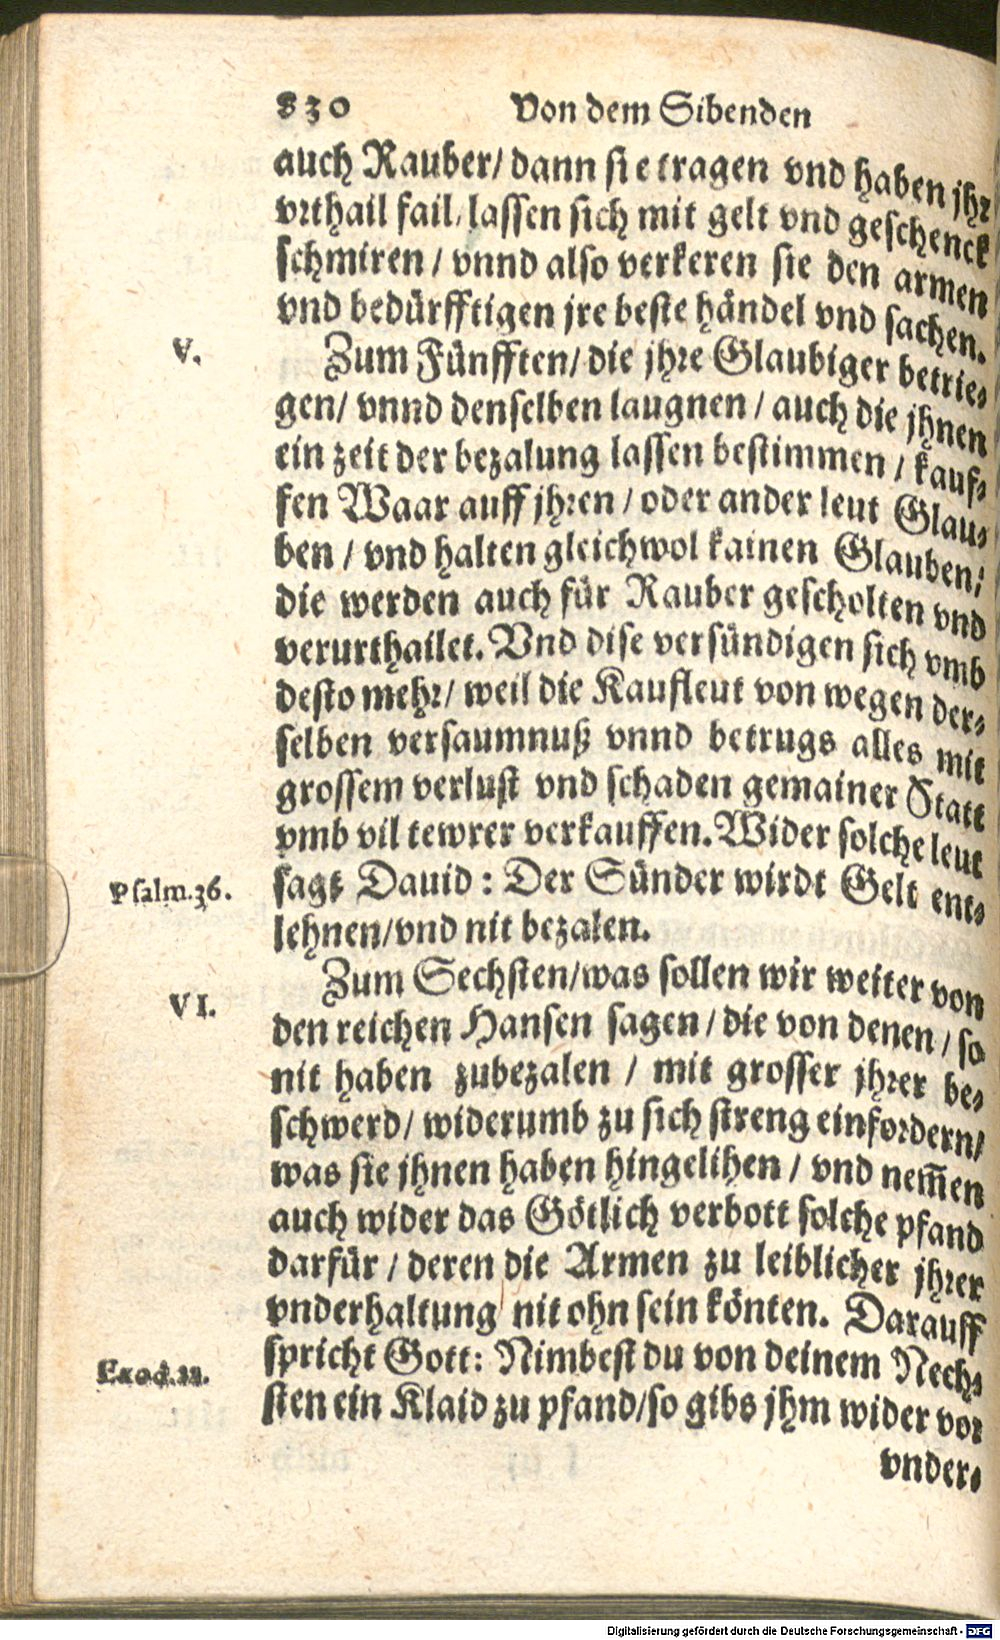 830 Von dem Sibenden
auch Rauber/ dann sie tragen vnd haben jhr
vrthail fail/ lassen sich mit gelt vnd geschenck
schmiren / vnnd also verkeren sie den armen
vnd bedürfftigen jre beste händel vnd sachen.
V.
Zum Fünfften/ die jhre Glaubiger betrie-
gen/ vnnd denselben laugnen / auch die jhnen
ein zeit der bezalung lassen bestimmen / kauf-
fen Waar auff jhren / oder ander leut Glau-
ben / vnd halten gleichwol kainen Glauben/
die werden auch für Rauber gescholten vnd
verurthailet. Vnd dise versündigen sich vmb
desto mehr/ weil die Kaufleut von wegen der-
selben versaumnuß vnnd betrugs alles mit
grossem verlust vnd schaden gemainer Statt
vmb vil tewrer verkauffen. Wider solche leut
Psalm.36.
sagt Dauid : Der Sünder wirdt Gelt ent-
lehnen/vnd nit bezalen.
VI.
Zum Sechsten/was sollen wir weiter von
den reichen Hansen sagen / die von denen / so
nit haben zubezalen / mit grosser jhrer be-
schwerd/ widerumb zu sich streng einfordern/
was sie jhnen haben hingelihen / vnd nem̃en
auch wider das Götlich verbott solche pfand
darfür / deren die Armen zu leiblicher jhrer
vnderhaltung nit ohn sein könten. Darauff
Exod.22.
spricht Gott: Nimbest du von deinem Nech-
sten ein Klaid zu pfand/so gibs jhm wider vor
vnder-
Digitalisierung gefördert durch die Deutsche Forschungsgemeinschaft - DFG